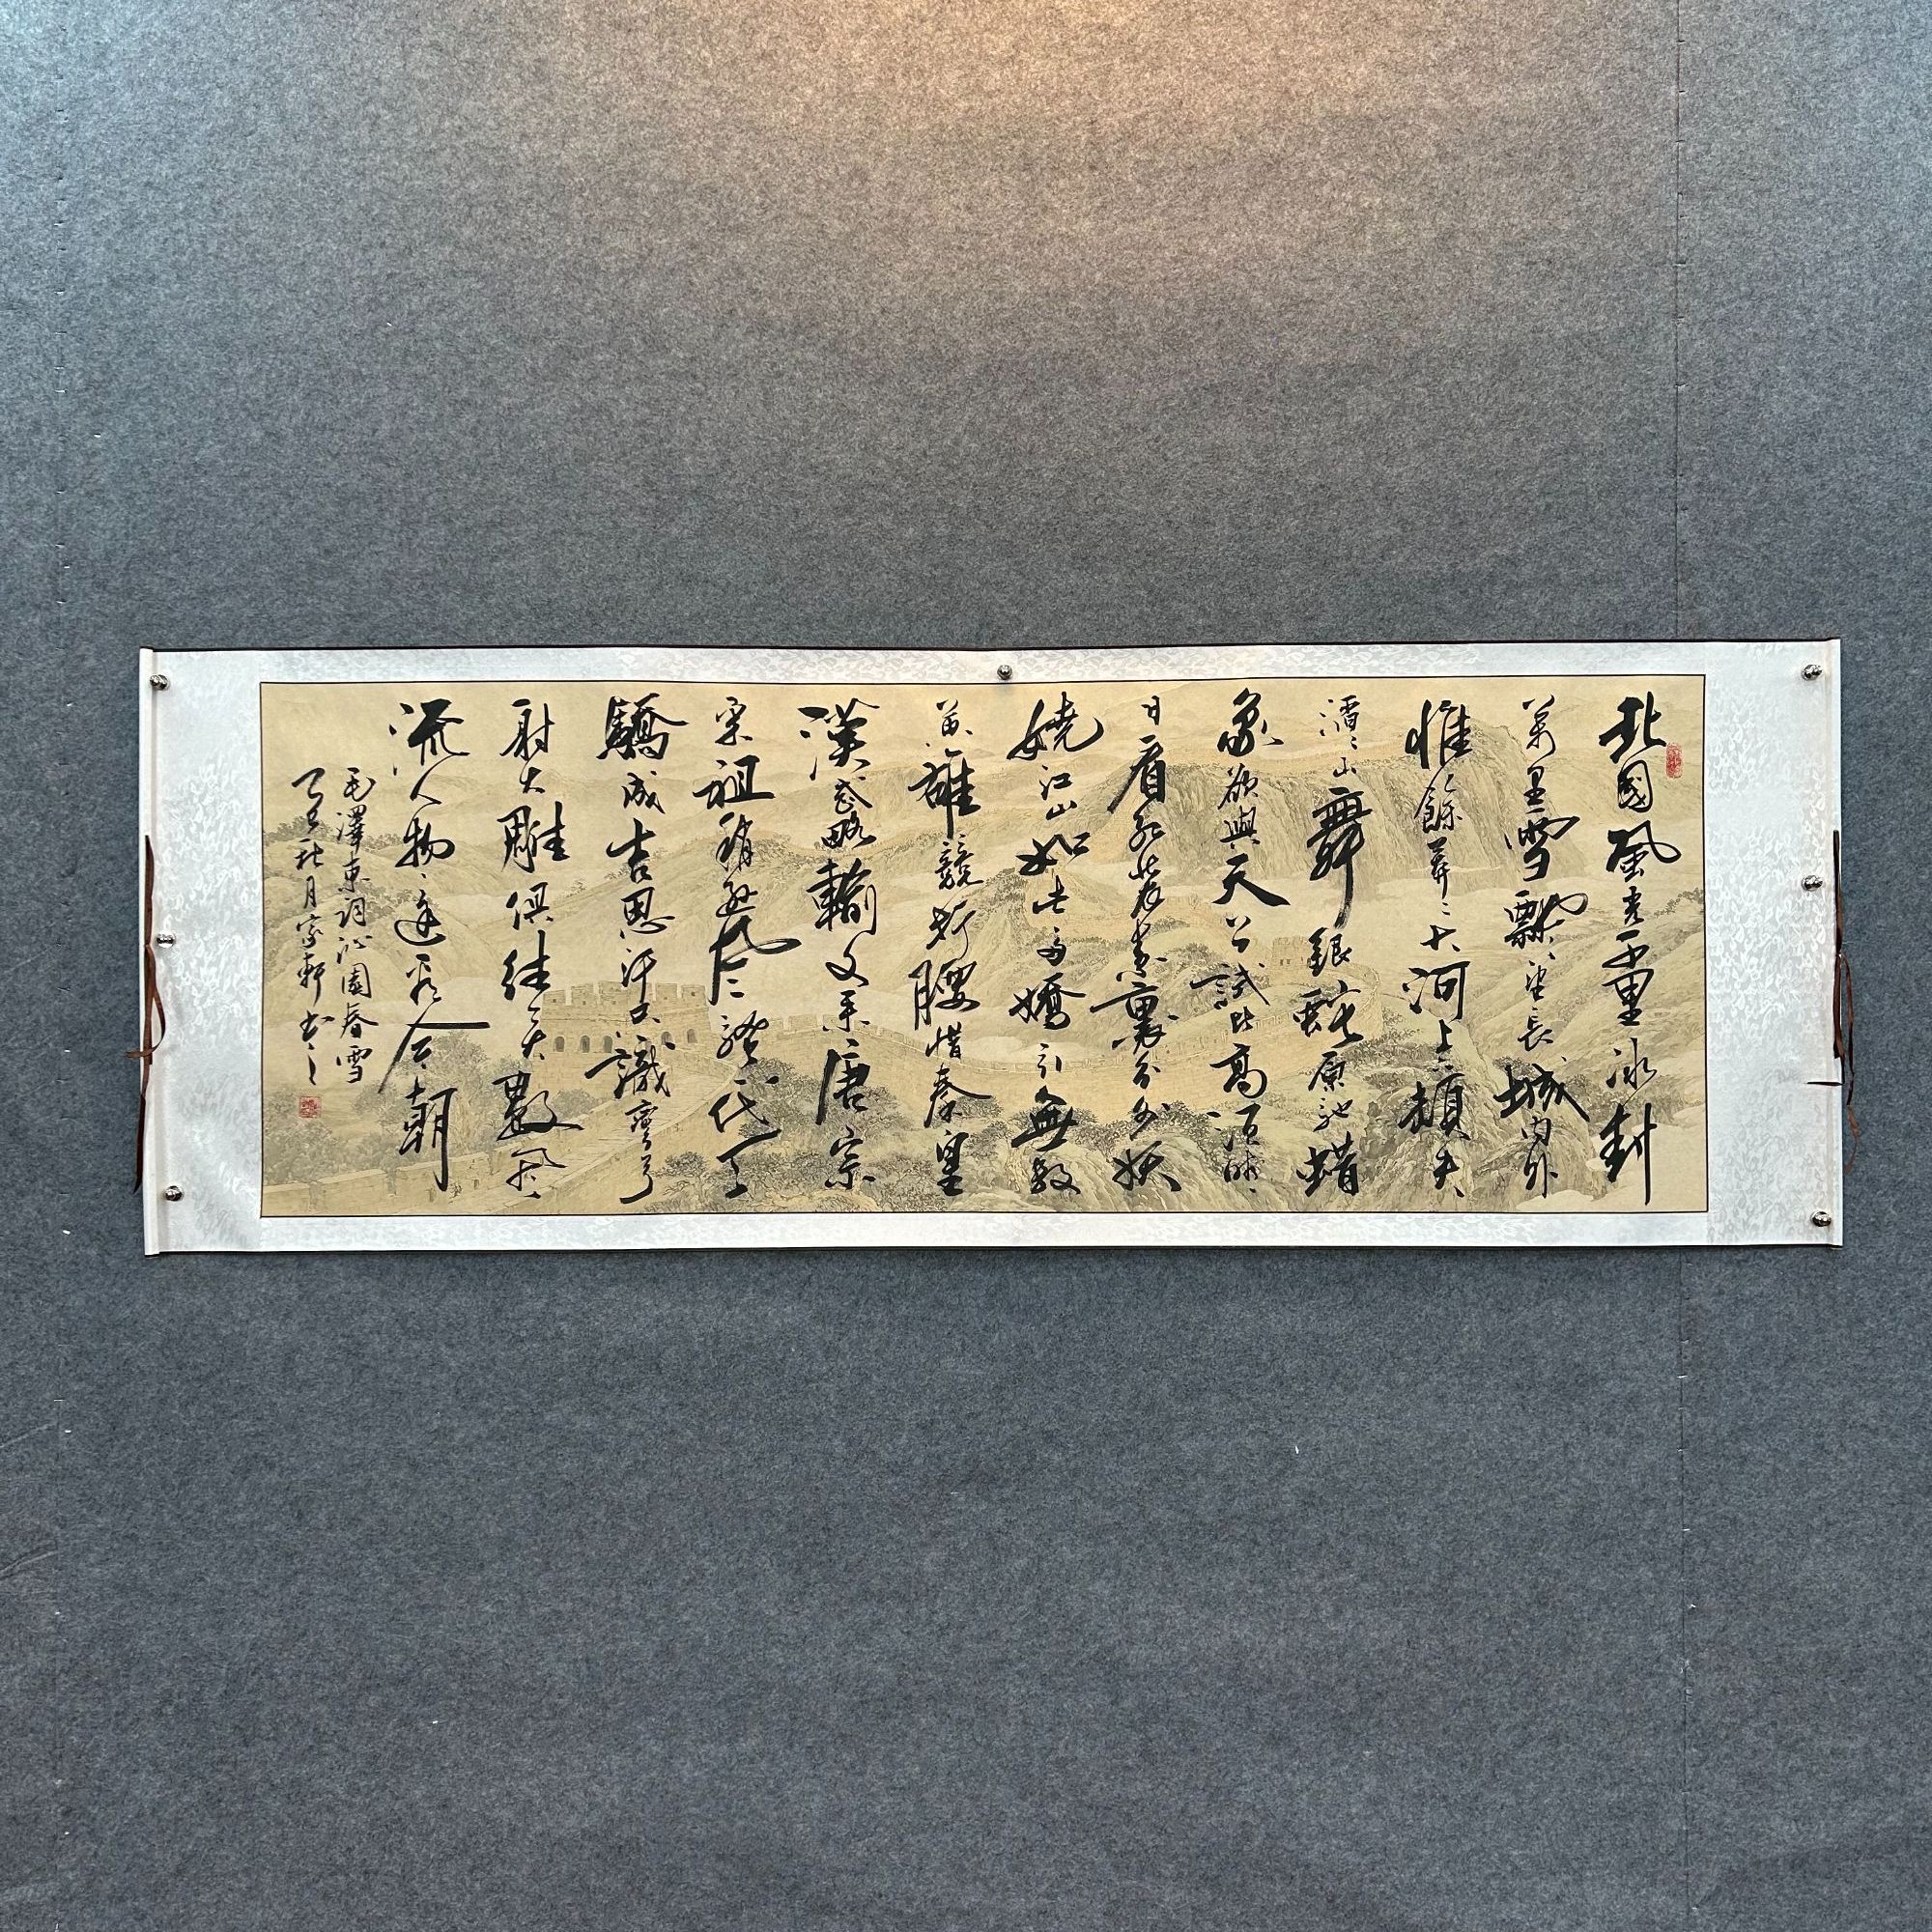 北國風光千里冰封
萬里雪飄望長城內外
惟餘莽〻大河上下頓失
滔〻山舞銀蛇原馳蠟
象欲與天公試比高須晴
日看紅裝素裹分外妖
嬈江山如此多嬌引無數
英雄競折腰惜秦皇
漢武略輸文采唐宗
宋祖稍遜風騷一代天
驕成吉思汗只識彎弓
射大雕俱往矣數風
流人物還看今朝
毛澤東詞沁園春雪
秋月家軒書之